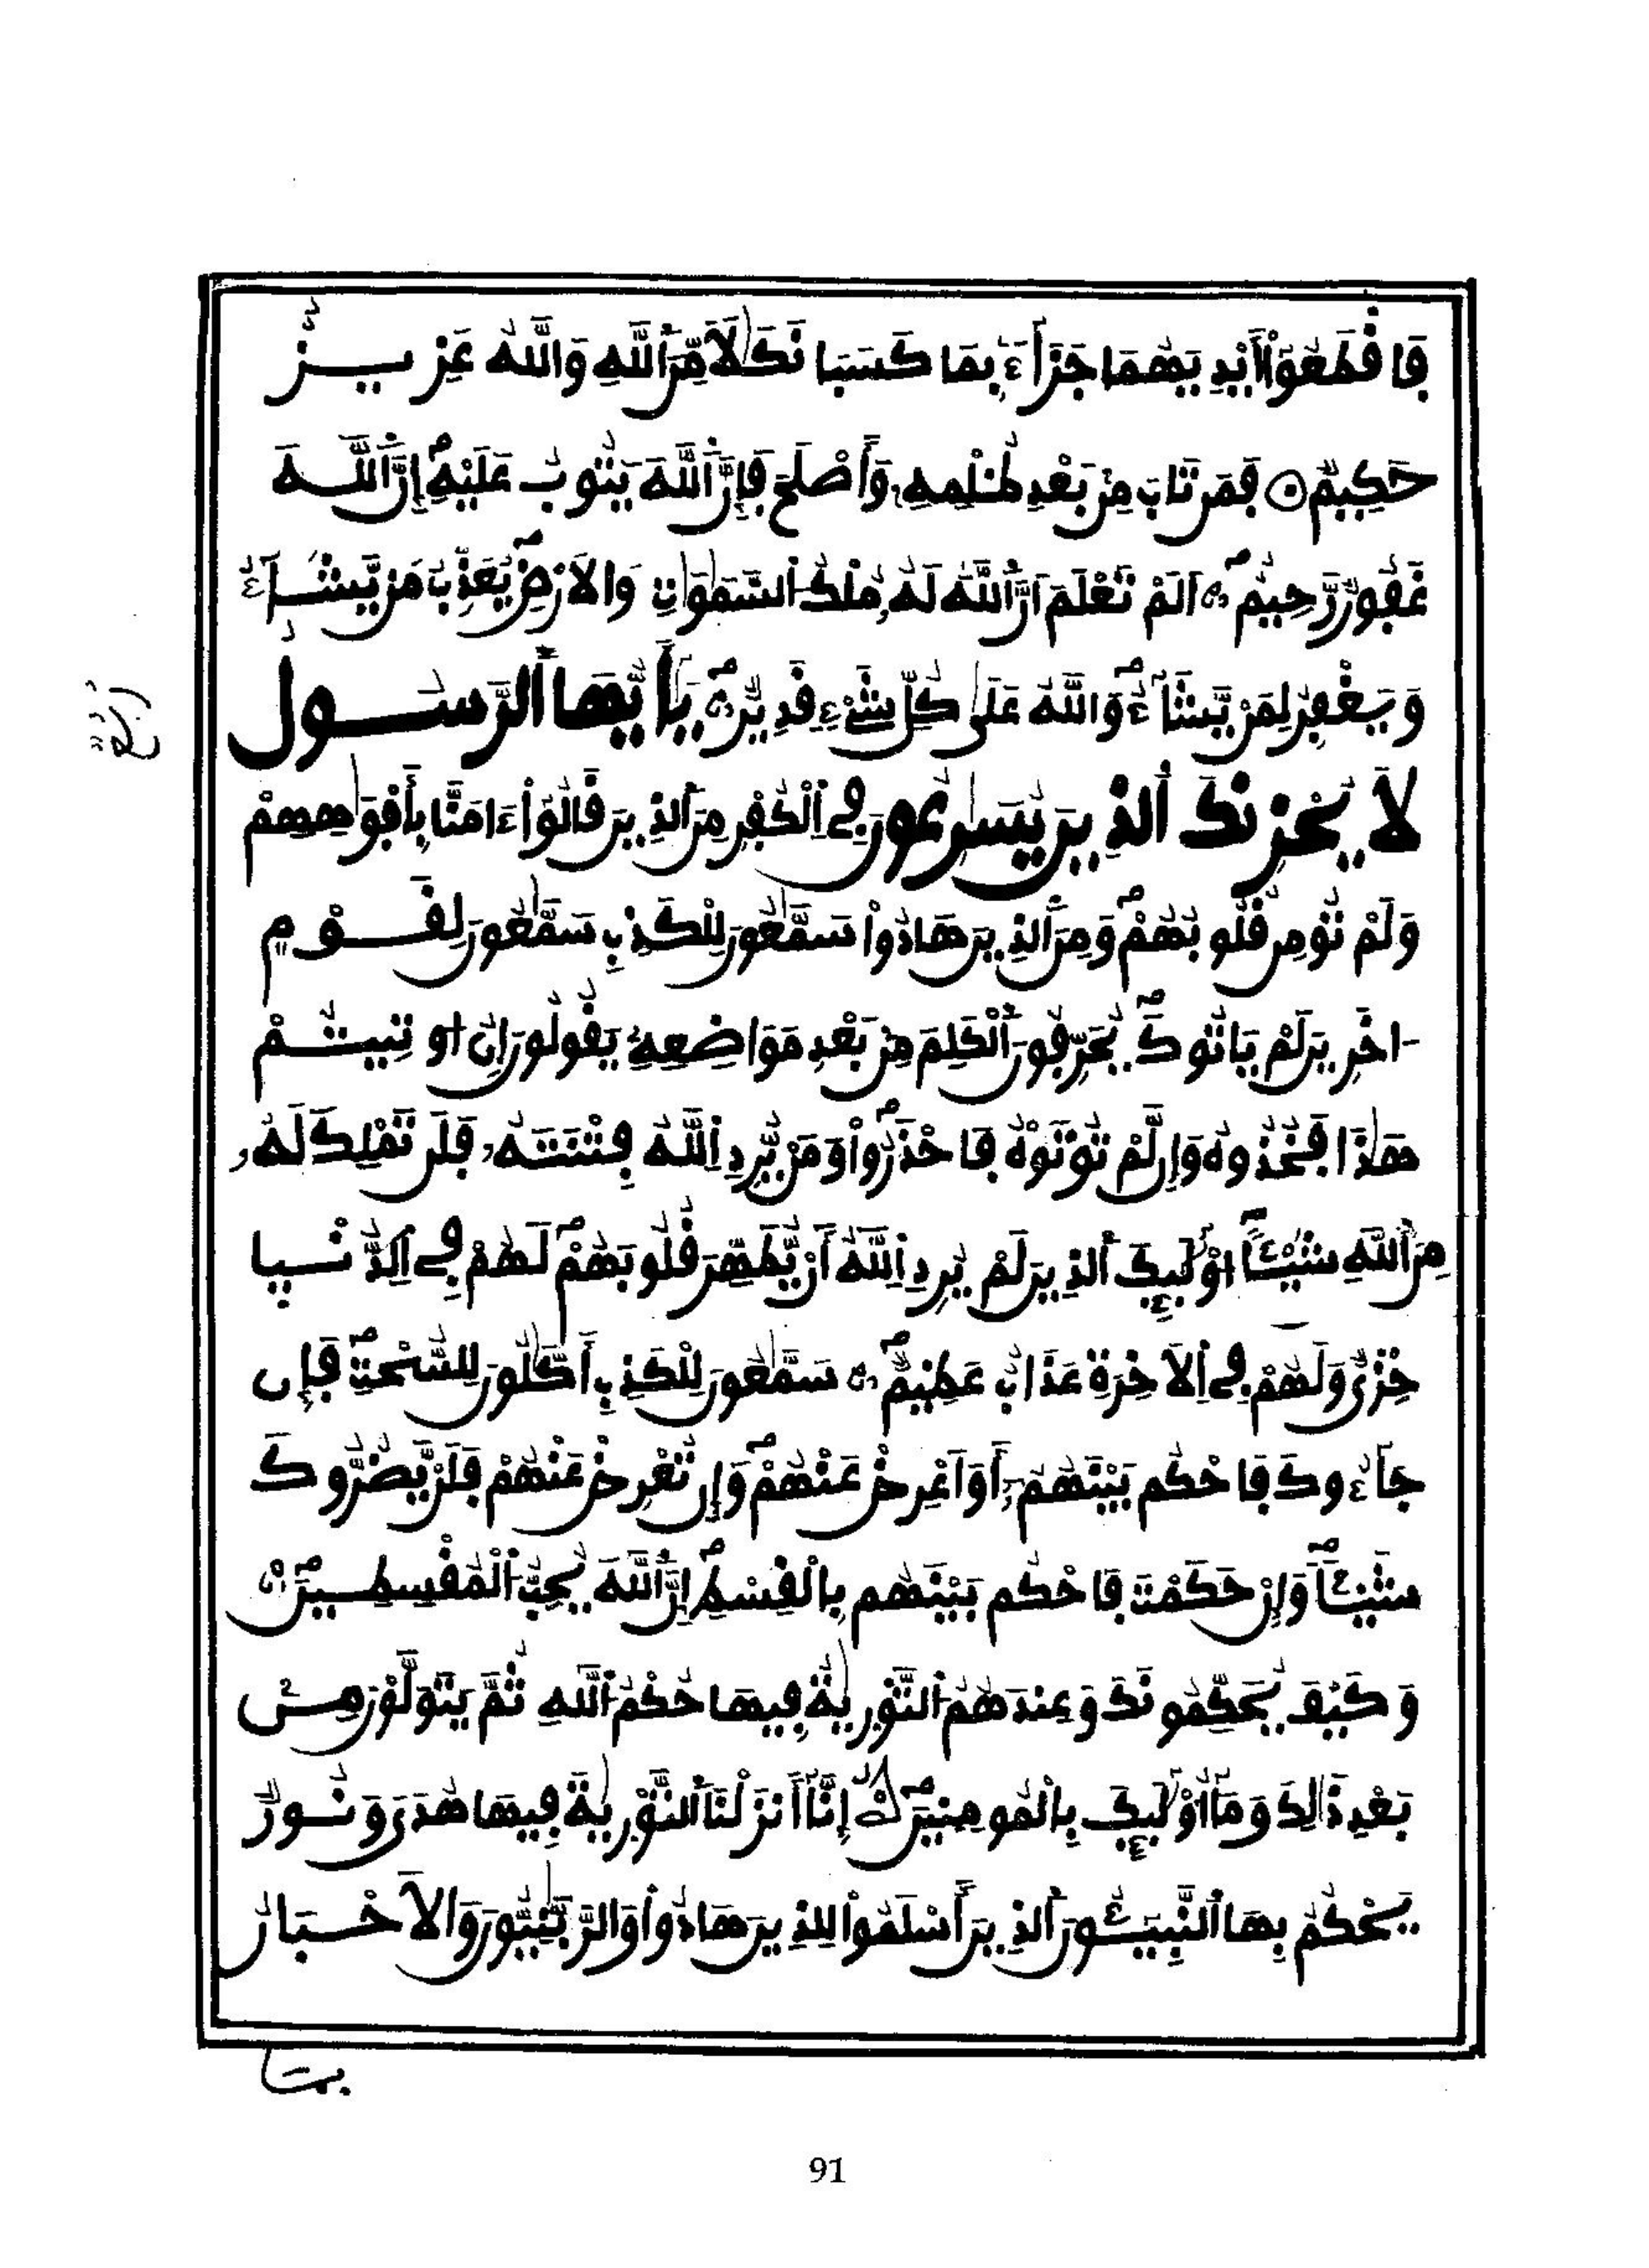 فَاقْطَعُوٓاْ أَيْدِيَهُمَا جَزَآءَۢ بِمَا كَسَبَا نَكَٰلٗا مِّنَ اَللَّهِ وَاللَّهُ عَزِيزٌ
حَكِيمٞ فَمَن تَابَ مِنۢ بَعْدِ ظُلْمِهِۦ وَأَصْلَحَ فَإِنَّ اَللَّهَ يَتُوبُ عَلَيْهِۖ إِنَّ اَللَّهَ
غَفُورٞ رَّحِيمٌۖ اَلَمْ تَعْلَمَ اَنَّ اَللَّهَ لَهُۥ مُلْكُ اُلسَّمَٰوَٰتِ وَالَارْضِۖ يُعَذِّبُ مَنْ يَّشَآءُ
وَيَغْفِرُ لِمَنْ يَّشَآءُۖ وَاللَّهُ عَلَىٰ كُلِّ شَےْءٖ قَدِيرٞۖ يَٰٓأَيُّهَا اَلرَّسُولُ
ربع
لَا يُحْزِنكَ اَلذِينَ يُسَٰرِعُونَ فِے اِلْكُفْرِ مِنَ اَلذِينَ قَالُوٓاْ ءَامَنَّا بِأَفْوَٰهِهِمْ
وَلَمْ تُومِن قُلُوبُهُمْۖ وَمِنَ اَلذِينَ هَادُواْ سَمَّٰعُونَ لِلْكَذِبِ سَمَّٰعُونَ لِقَوْمٍ
اٰخَرِينَ لَمْ يَاتُوكَۖ يُحَرِّفُونَ اَلْكَلِمَ مِنۢ بَعْدِ مَوَاضِعِهِۦ يَقُولُونَ إِنُ اوتِيتُمْ
هَٰذَا فَخُذُوهُ وَإِن لَّمْ تُوتَوْهُ فَاحْذَرُواْۖ وَمَنْ يُّرِدِ اِللَّهُ فِتْنَتَهُۥ فَلَن تَمْلِكَ لَهُۥ
مِنَ اَللَّهِ شَيْـٔاًۖ اوْلَٰٓئِكَ اَلذِينَ لَمْ يُرِدِ اِللَّهُ أَنْ يُّطَهِّرَ قُلُوبَهُمْۖ لَهُمْ فِے اِلدُّنْيَا
خِزْيٞ وَلَهُمْ فِے اِلَاخِرَةِ عَذَابٌ عَظِيمٞۖ سَمَّٰعُونَ لِلْكَذِبِ أَكَّٰلُونَ لِلسُّحْتِۖ فَإِن
جَآءُوكَ فَاحْكُم بَيْنَهُمُۥٓ أَوَ اَعْرِضْ عَنْهُمْۖ وَإِن تُعْرِضْ عَنْهُمْ فَلَنْ يَّضُرُّوكَ
شَيْـٔاٗۖ وَإِنْ حَكَمْتَ فَاحْكُم بَيْنَهُم بِالْقِسْطِۖ إِنَّ اَللَّهَ يُحِبُّ اُلْمُقْسِطِينَۖ
وَكَيْفَ يُحَكِّمُونَكَ وَعِندَهُمُ اُلتَّوْرَيٰةُ فِيهَا حُكْمُ اُللَّهِ ثُمَّ يَتَوَلَّوْنَ مِنۢ
بَعْدِ ذَٰلِكَ وَمَآ أُوْلَٰٓئِكَ بِالْمُومِنِينَۖ إِنَّآ أَنزَلْنَا اَلتَّوْرَيٰةَ فِيهَا هُدىٗ وَنُورٞ
يَحْكُمُ بِهَا اَلنَّبِيٓـُٔونَ اَلذِينَ أَسْلَمُواْ لِلذِينَ هَادُواْ وَالرَّبَّٰنِيُّونَ وَالَاحْبَارُ
بما
91